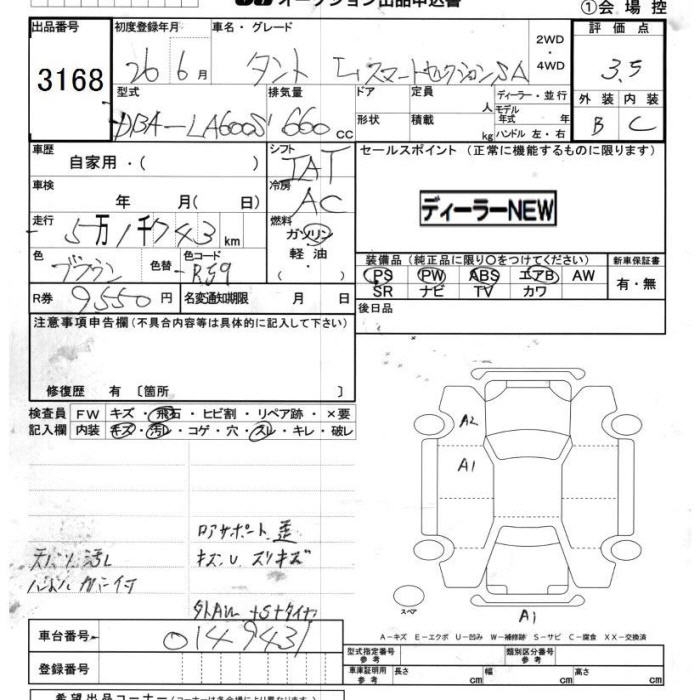 オークション出品申込書
①会場控
出品番号 初度登録年月 車名・グレード 2WD・4WD 評価点
3168 26 6月 タント L スマートセレクションSA 3.5
型式 排気量 ドア 定員 人 ディーラー・並行 外装 内装
DBA-LA600S 660 cc 形状 積載 kg モデル年式 年 ハンドル 左・右 B C
車歴 シフト セールスポイント (正常に機能するものに限ります)
自家用・( ) IAT
車検 冷房
年 月( 日) AC ディーラーNEW
走行 燃料
5万1千743km ガソリン
軽油
色 色替 色コード 装備品 (純正品に限り○をつけてください) 新車保証書
ブラウン R59 PS PW ABS エアB AW 有・無
SR ナビ TV カワ
R券 9550円 名変通知期限 月 日 後日品
注意事項申告欄 (不具合内容等は具体的に記入して下さい)
修復歴 有 〔箇所 〕
検査員 FW キズ・飛石・ヒビ割・リペア跡・×要
記入欄 内装 キズ・汚レ・コゲ・穴・スレ・キレ・破レ
A2
A1
コアサポート 歪
天バリ汚レ キズU スリキズ
ハンドルカバー付
スペア
A1
A-キズ E-エクボ U-凹み W-補修跡 S-サビ C-腐食 XX-交換済
車台番号 0149431
型式指定番号 参考 類別区分番号 参考
登録番号 車庫証明用 参考 長さ cm 幅 cm 高さ cm
希望出品コーナー